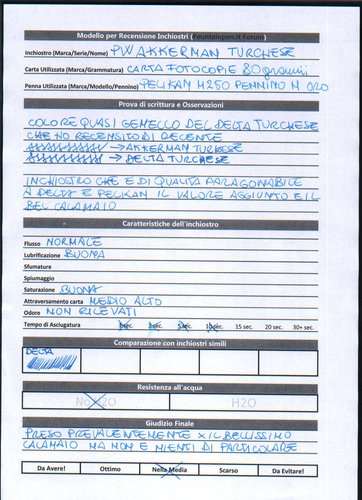 Modello per Recensione Inchiostri (Fountainpen.it Forum)
Inchiostro (Marca/Serie/Nome) PW AKKERMAN TURCHESE
Carta Utilizzata (Marca/Grammatura) CARTA FOTOCOPIE 80 grammi
Penna Utilizzata (Marca/Modello/Pennino) PELIKAN M250 PENNINO M ORO
Prova di scrittura e Osservazioni
COLORE QUASI GEMELLO DEL DELTA TURCHESE
CHE HO RECENSITO DI RECENTE
→ AKKERMAN TURKESE
→ DELTA TURCHESE
INCHIOSTRO CHE E DI QUALITA PARAGONABILE
A DELTA E PELIKAN IL VALORE AGGIUNTO E IL
BEL CALAMAIO
Caratteristiche dell'inchiostro
Flusso NORMALE
Lubrificazione BUONA
Sfumature
Spiumaggio
Saturazione BUONA
Attraversamento carta MEDIO ALTO
Odore NON RILEVATI
Tempo di Asciugatura sec. 3sec. 5sec. 10sec. 15 sec. 20 sec. 30+ sec.
Comparazione con inchiostri simili
DELTA
Resistenza all'acqua
No H2O H2O
Giudizio Finale
PRESO PREVALENTEMENTE X IL BELLISSIMO
CALAMAIO MA NON E NIENTI DI PARTICOLARE
Da Avere! Ottimo Nella Media Scarso Da Evitare!